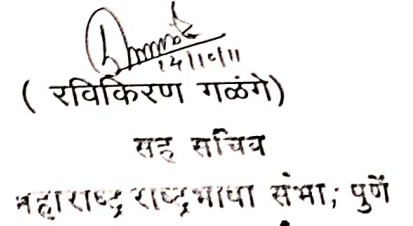 14/10/11
( रविकिरण गळंगे)
सह सचिव
महाराष्ट्र राष्ट्रभाषा संभा, पुणें